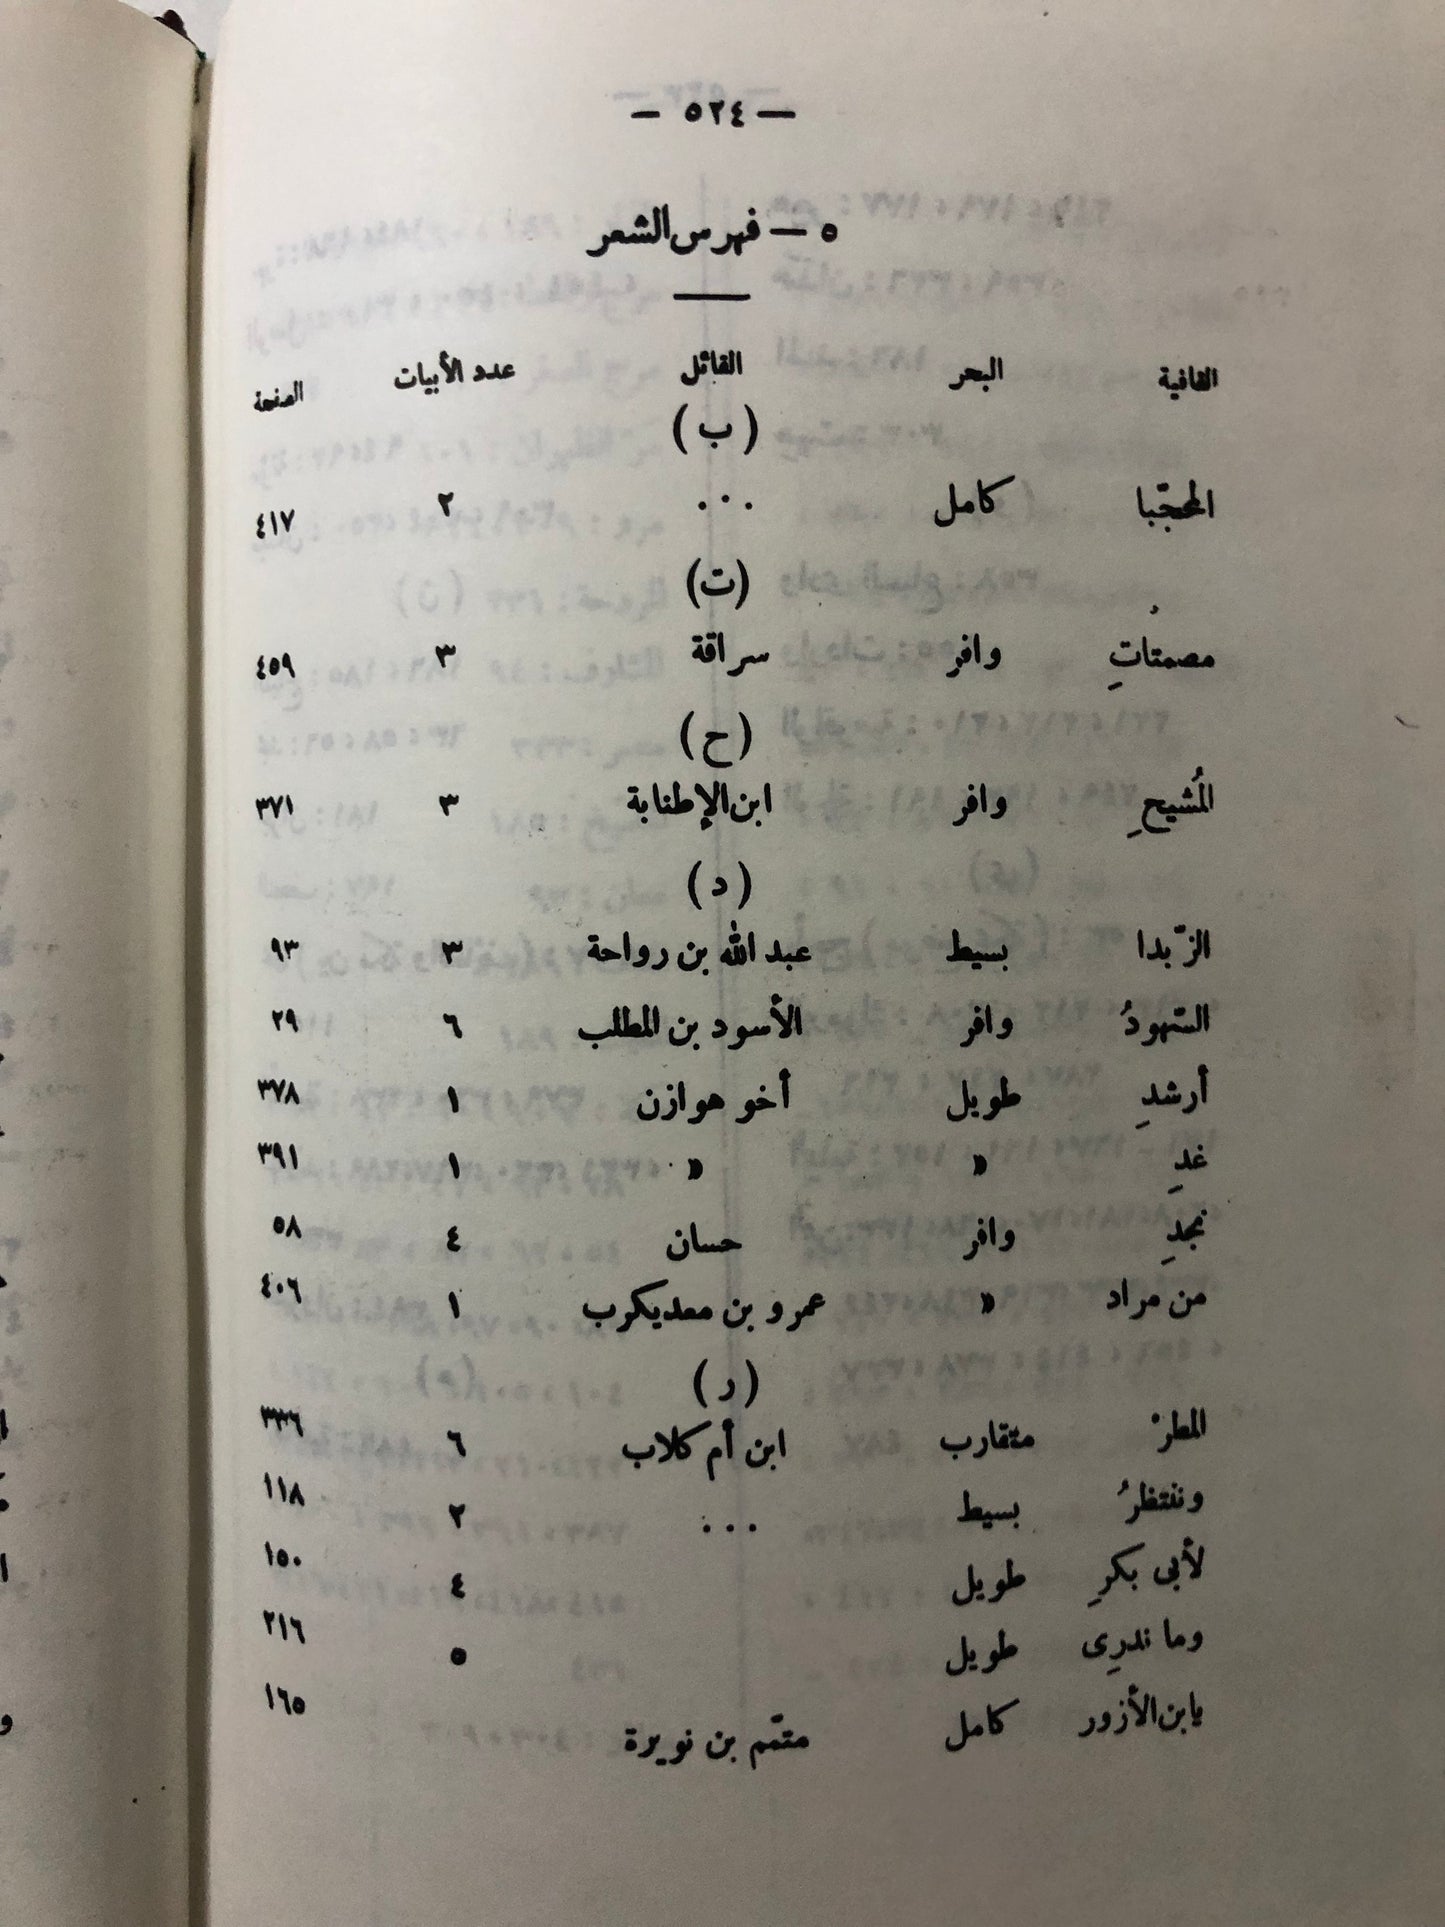 — ٥٢٤ —
٥ — فهرس الشعر
القافية البحر القائل عدد الأبيات الصفحة
(ب)
المحجّبا كامل ... ٢ ٤١٧
(ت)
مصمتاتِ وافر سراقة ٣ ٤٥٩
(ح)
المُشيحِ وافر ابن الإطنابة ٣ ٣٧١
(د)
الزّبدا بسيط عبد الله بن رواحة ٣ ٩٣
السّهودُ وافر الأسود بن المطلب ٦ ٢٩
أرشدِ طويل أخو هوازن ١ ٣٧٨
غدِ » » ١ ٣٩١
نجدِ وافر حسان ٤ ٥٨
من مراد » عمرو بن معديكرب ١ ٤٠٦
(ر)
المطرْ متقارب ابن أم كلاب ٦ ٣٣٦
وننتظرُ بسيط ... ٢ ١١٨
لأبى بكرِ طويل ٤ ١٥٠
وما ندرِى طويل ٥ ٢١٦
يابن الأزور كامل متمّم بن نويرة ١٦٥